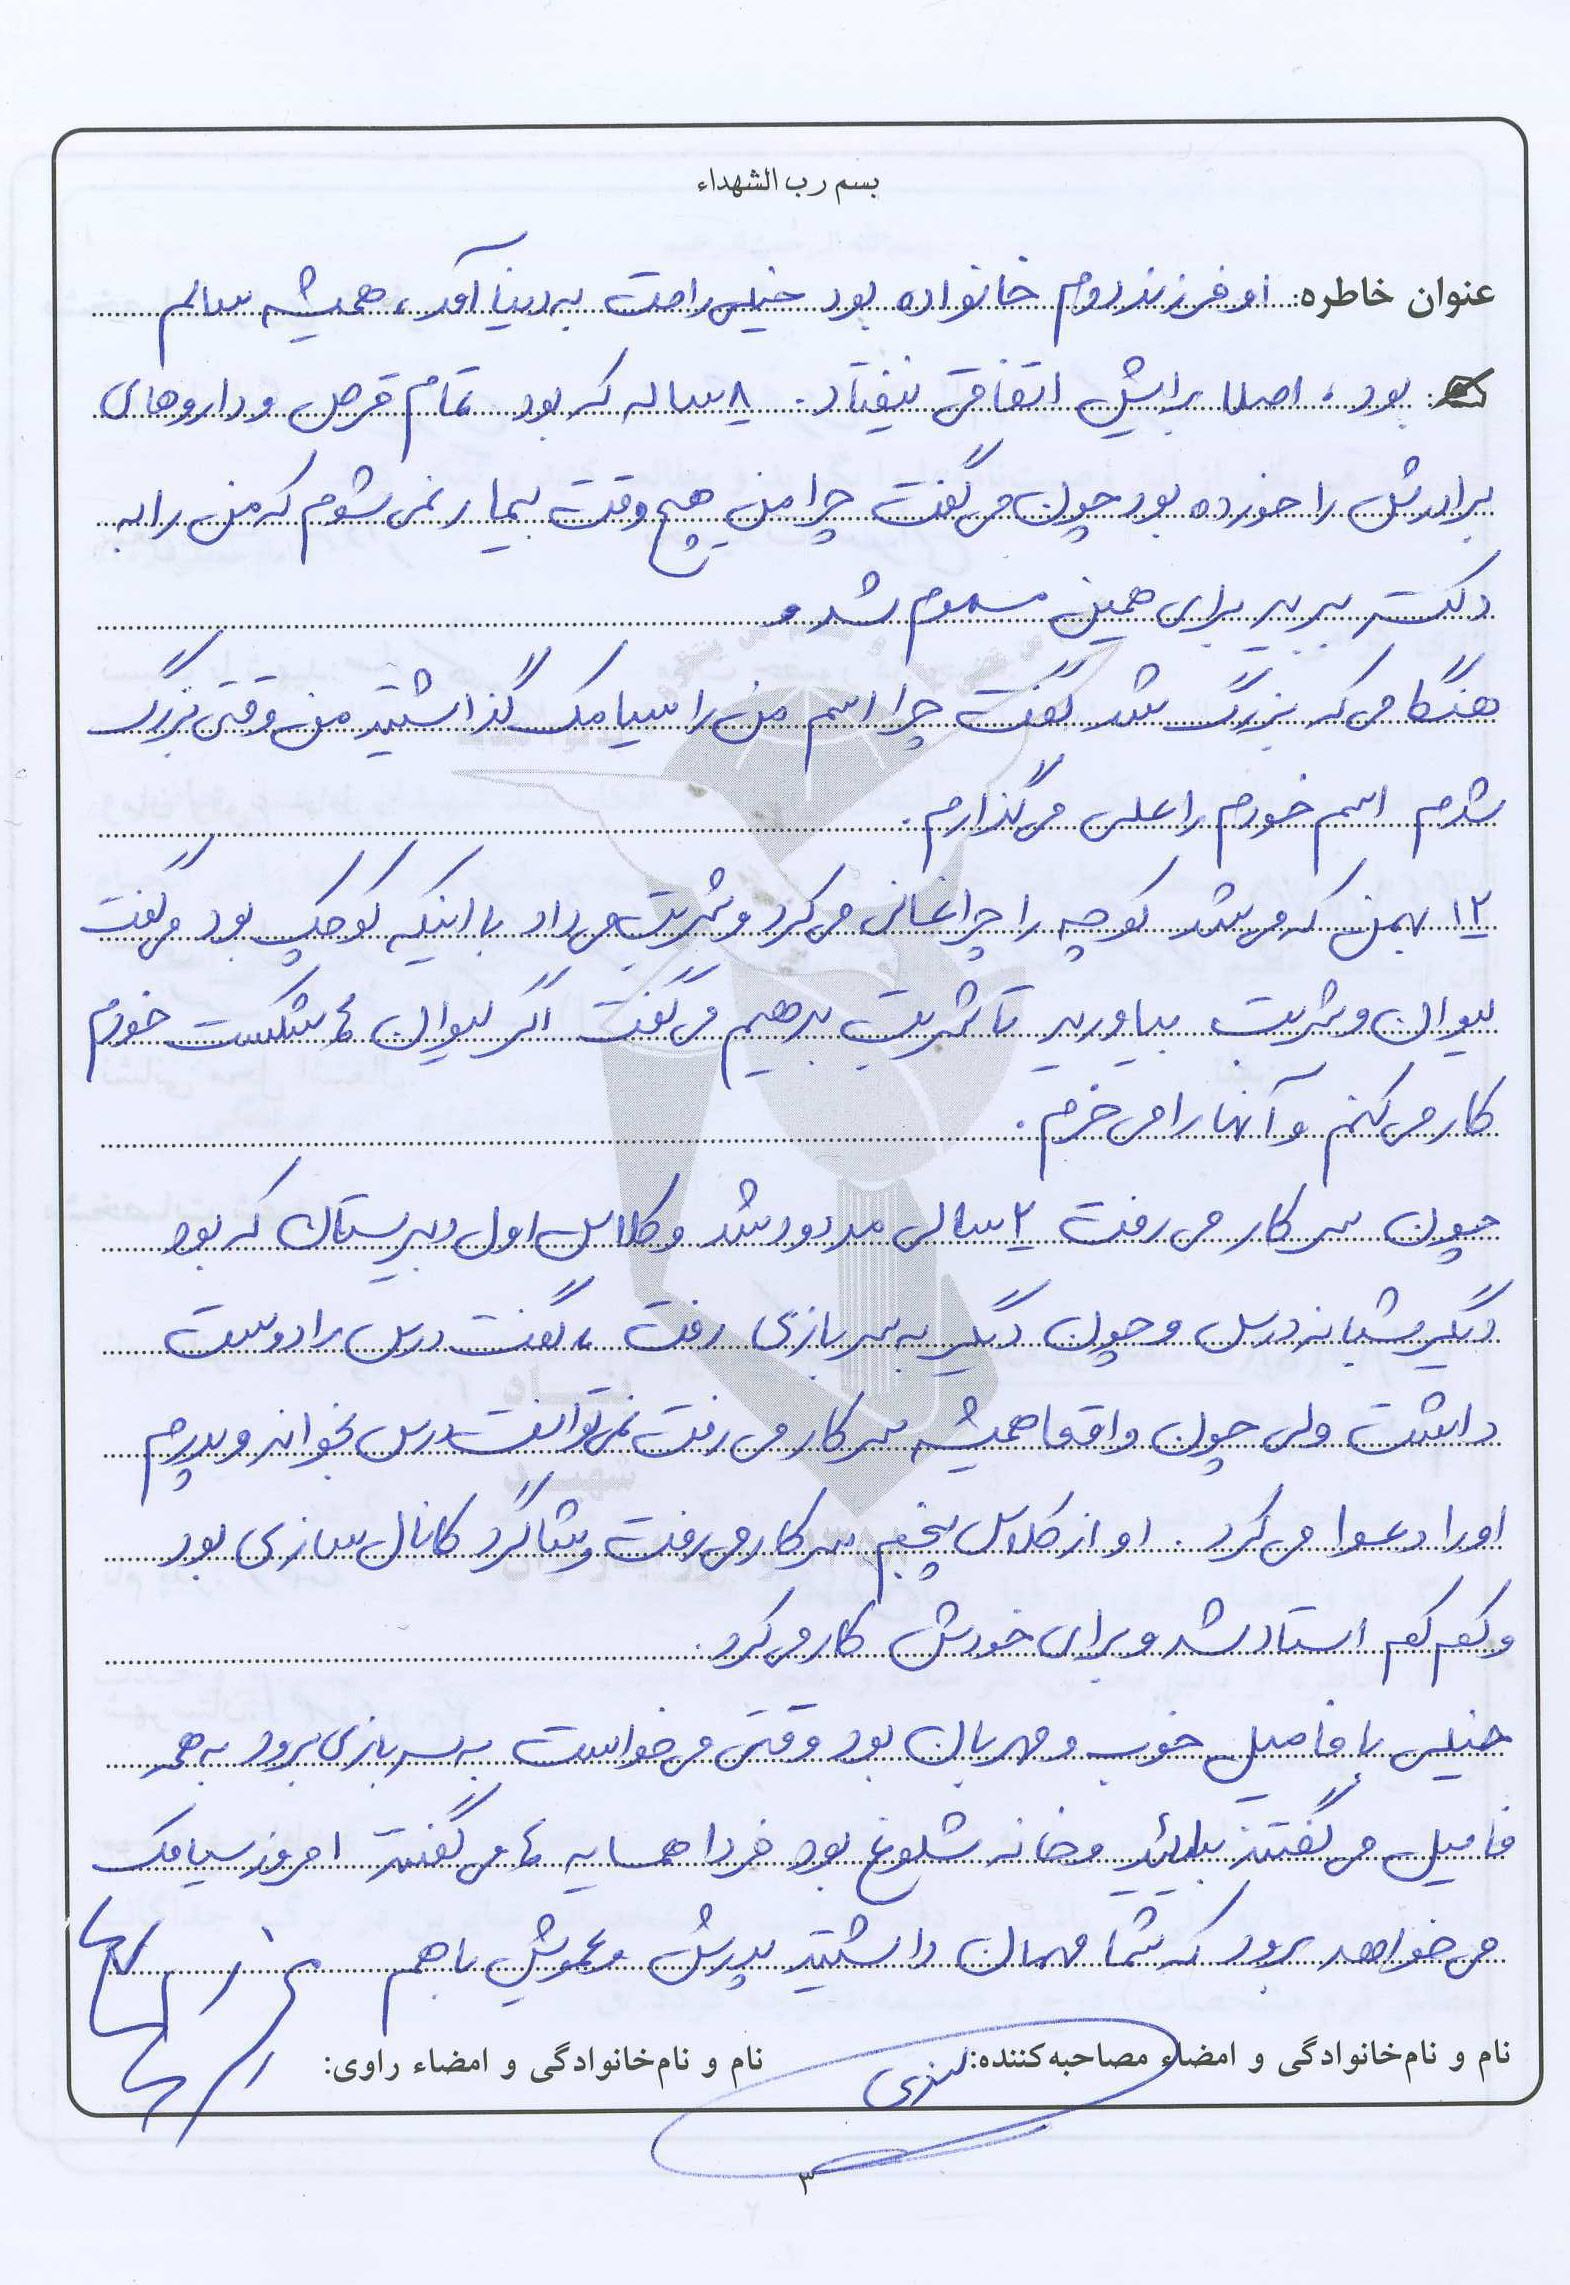 بسم رب الشهداء
عنوان خاطره: او فرزند دوم خانواده بود خیلی راحت به دنیا آمد، همیشه سالم
بود، اصلا برایش اتفاقی نیفتاد. ۸ ساله که بود تمام قرص و داروهای
برادرش را خورده بود چون می‌گفت چرا من هیچ وقت بیمار نمی‌شوم که من را به
دکتر ببرید برای همین مسموم شد.
هنگامی که بزرگ شد گفت چرا اسم من را سیامک گذاشتید من وقتی بزرگ
شدم اسم خودم را علی می‌گذارم.
۱۲ بهمن که می‌شد کوچه را چراغانی می‌کرد و شربت می‌داد با اینکه کوچک بود می‌گفت
لیوان و شربت بیاورید تا شربت بدهیم می‌گفت اگر لیوان ها شکست خودم
کار می‌کنم و آنها را می‌خرم.
چون سر کار می‌رفت ۲ سالی مردود شد و کلاس اول دبیرستان که بود
دیگر شبانه درس و چون دیگر به سربازی رفت، گفت درس را دوست
داشت ولی چون واقعا همیشه سر کار می‌رفت نمی‌توانست درس بخواند و پدرم
او را دعوا می‌کرد. او از کلاس پنجم سر کار می‌رفت و شاگرد کانال سازی بود
و کم کم استاد شد و برای خودش کار می‌کرد.
خیلی با فامیل خوب و مهربان بود وقتی می‌خواست به سربازی برود به همه
فامیل می‌گفتند بیایید و خانه شلوغ بود فردا همسایه ها می‌گفتند امروز سیامک
می‌خواهد برود که شما مهمان داشتید پدرش و عمویش با هم
نام و نام‌خانوادگی و امضاء مصاحبه‌کننده:
نام و نام‌خانوادگی و امضاء راوی:
۳